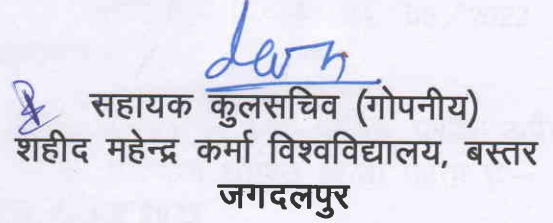 सहायक कुलसचिव (गोपनीय)
शहीद महेन्द्र कर्मा विश्वविद्यालय, बस्तर
जगदलपुर